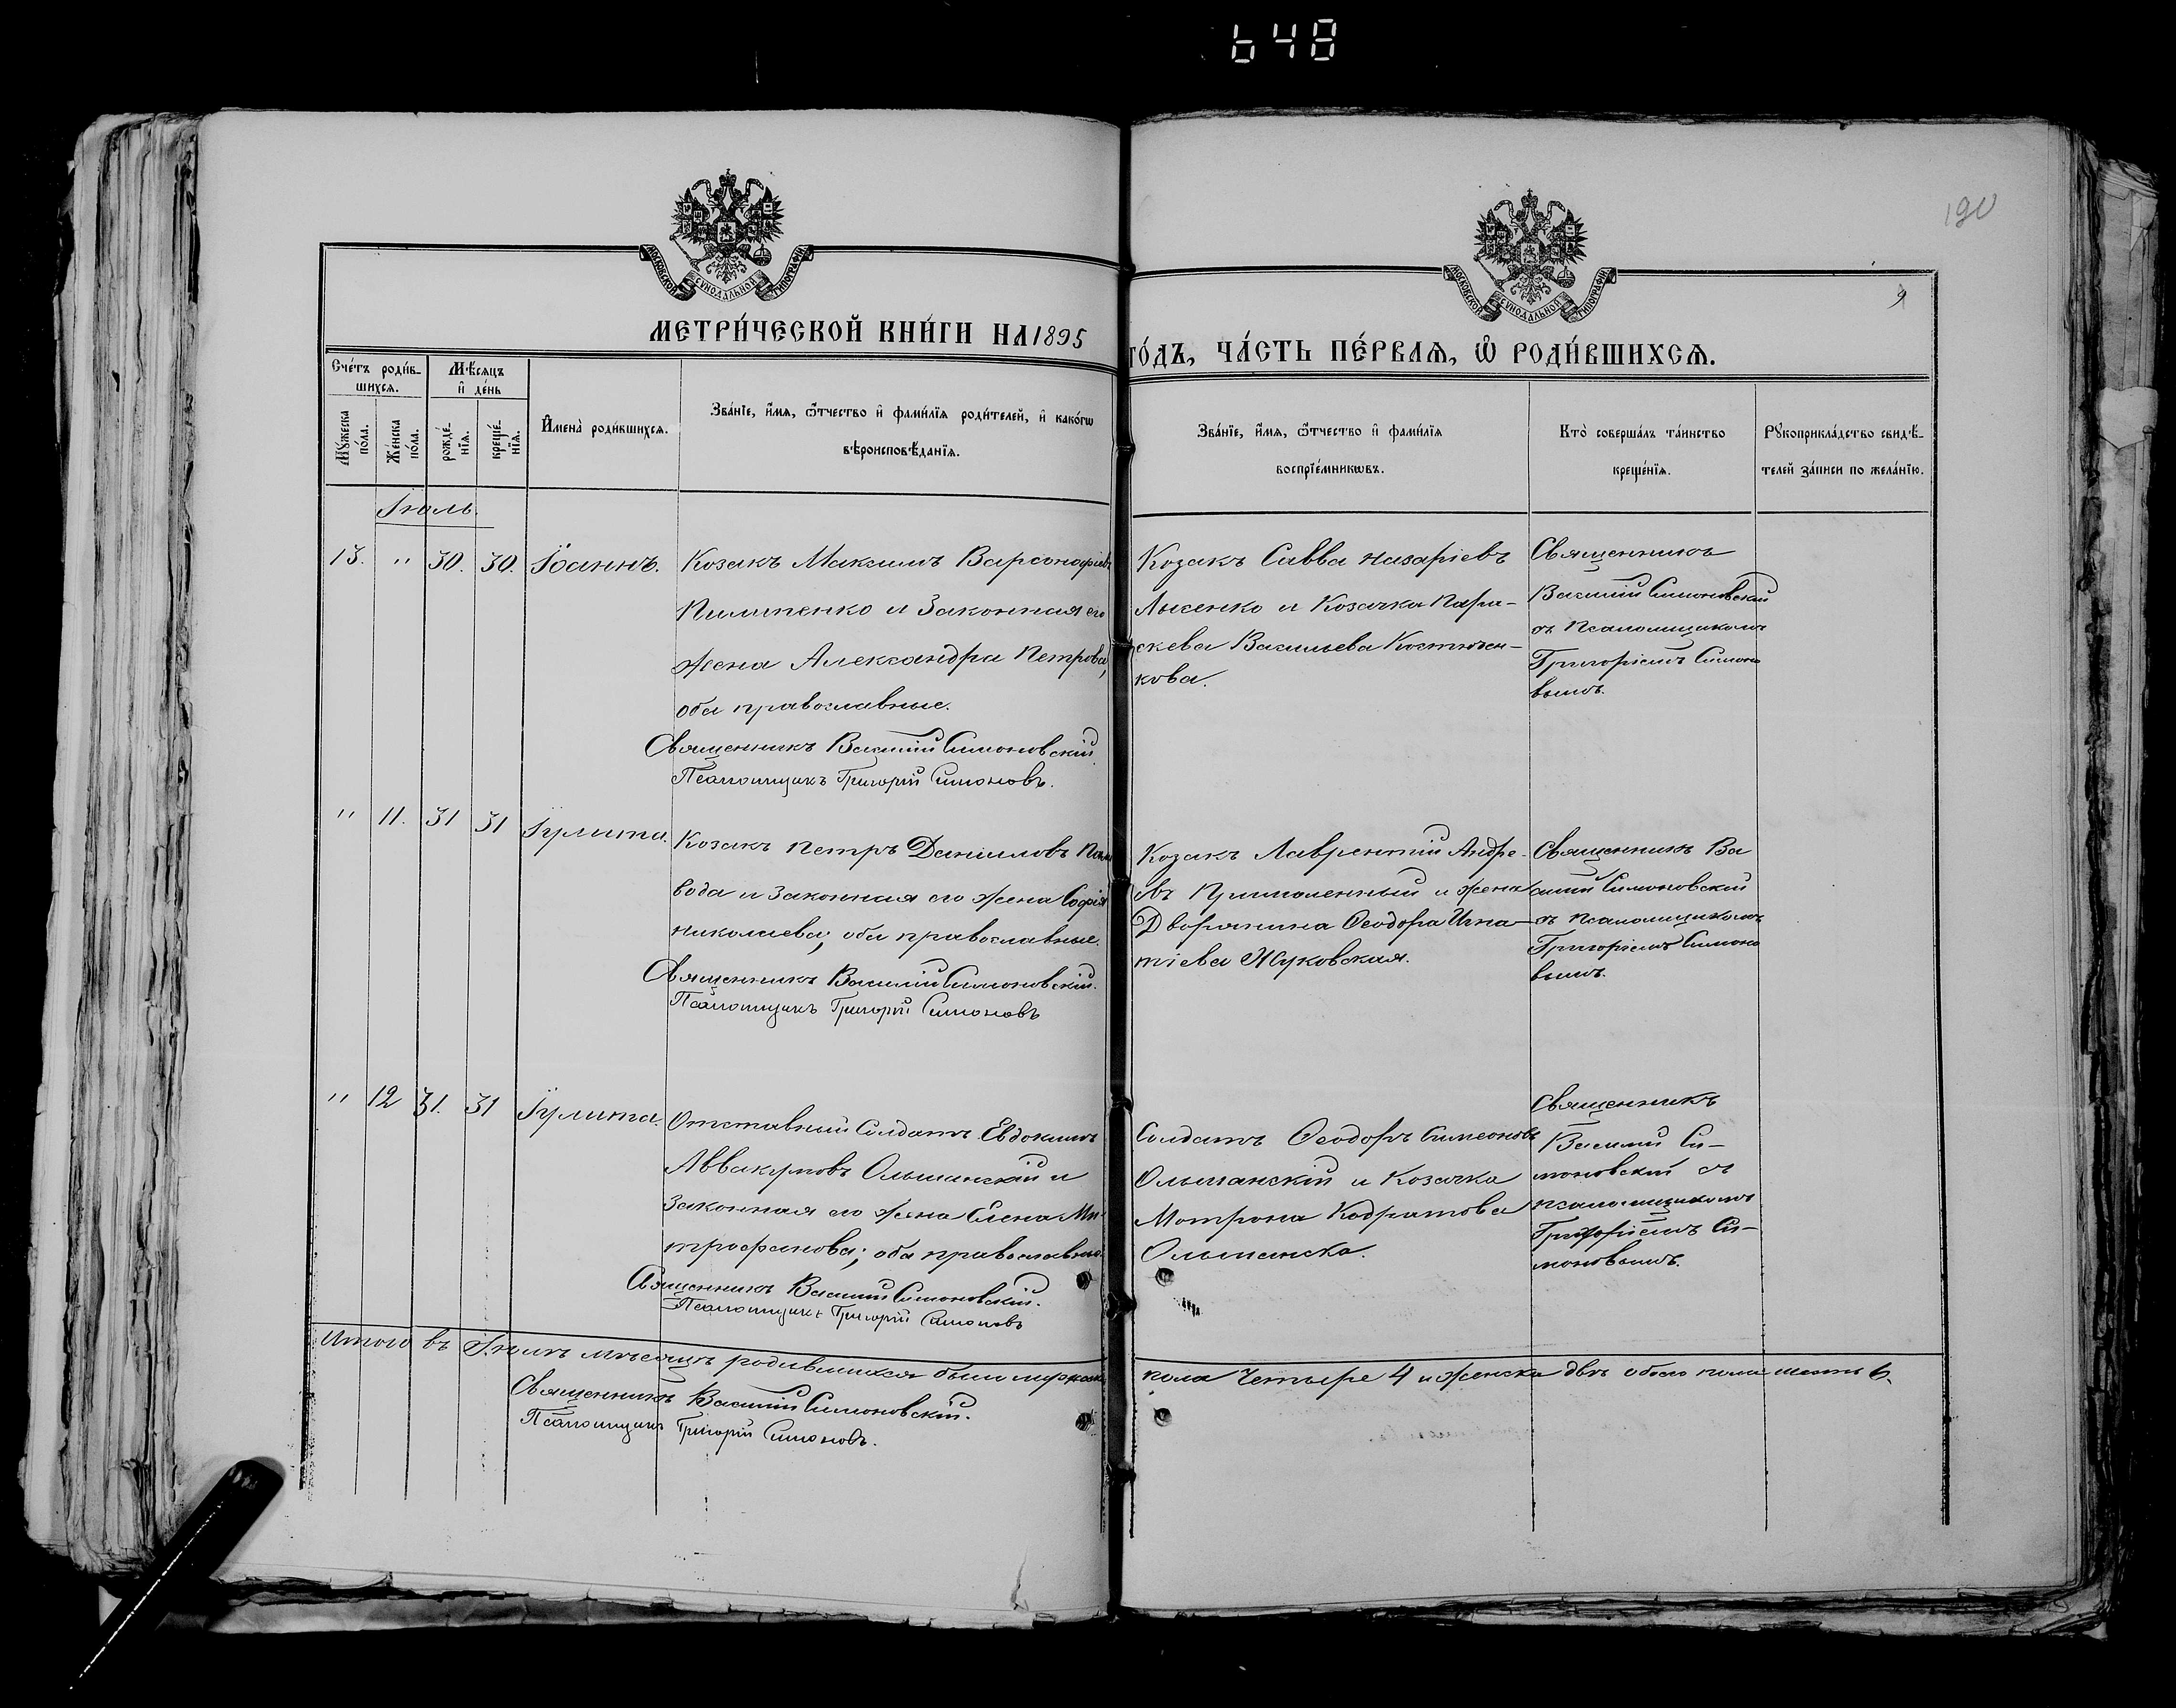 648
190
9
МОСКОВСКОЙ СѴНОДАЛЬНОЙ ТИПОГРАФІИ
МОСКОВСКОЙ СѴНОДАЛЬНОЙ ТИПОГРАФІИ
МЕТРИ́ЧЕСКОЙ КНИ́ГИ НА 1895
ГО́ДЪ, ЧА́СТЬ ПЕ́РВАѦ, Ѽ РОДИ́ВШИХСѦ.
Сче́тъ роди́в-
шихсѧ.
Мꙋ́жеска
по́ла.
Же́нска
по́ла.
Мѣ́сѧцъ
и҆ де́нь
рожде́-
нїѧ.
креще́-
нїѧ.
И҆мена̀ роди́вшихсѧ.
Зва́нїе, и҆́мѧ, ѻ҆́тчество и҆ фами́лїѧ роди́телей, и҆ како́гѡ
вѣроисповѣ́данїѧ.
Зва́нїе, и҆́мѧ, ѻ҆́тчество и҆ фами́лїѧ
воспрїе́мникѡвъ.
Кто̀ соверша́лъ та́инство
креще́нїѧ.
Рꙋкоприкла́дство свидѣ́-
телей за́писи по жела́нїю.
Іюль.
13. " 30. 30. Іоаннъ.
Козакъ Максимъ Варсонофіевъ
Пилипенко и Законная его
жена Александра Петрова,
оба православные.
Священникъ Василій Симоновскій.
Псаломщикъ Григорій Симоновъ.
Козакъ Савва Назаріевъ
Лысенко и Козачка Пара-
скева Васильева Костючен-
кова.
Священникъ
Василій Симоновскій
съ Псаломщикомъ
Григоріемъ Симоно
вымъ.
" 11. 31 31 Іулита.
Козакъ Петръ Даниловъ
вода и Законная его жена Софія
Николаева; оба православные.
Священникъ Василій Симоновскій.
Псаломщикъ Григорій Симоновъ
Козакъ Лаврентій Андре-
евъ Примоленный и жена
Дворянина Ѳеодора Игна-
тіева Жуковская.
Священникъ Ва
силій Симоновскій
съ псаломщикомъ
Григоріемъ Симоно
вымъ.
" 12 31. 31 Іулита.
Отставный Солдатъ Евдокимъ
Аввакумовъ Ольшанскій и
Законная его жена Елена Ми-
трофанова; оба православные.
Священникъ Василій Симоновскій.
Псаломщикъ Григорій Симоновъ
Солдатъ Ѳеодоръ Симеоновъ
Ольшанскій и Козачка
Мотрона Кодратова
Ольшанска.
Священникъ
Василій Си-
моновскій съ
псаломщикомъ
Григоріемъ Си-
моновымъ.
Итого въ Іюлѣ мѣсяцѣ родившихся было мужеска
пола Четыре 4 и женска двѣ обоего пола шесть 6.
Священникъ Василій Симоновскій.
Псаломщикъ Григорій Симоновъ.